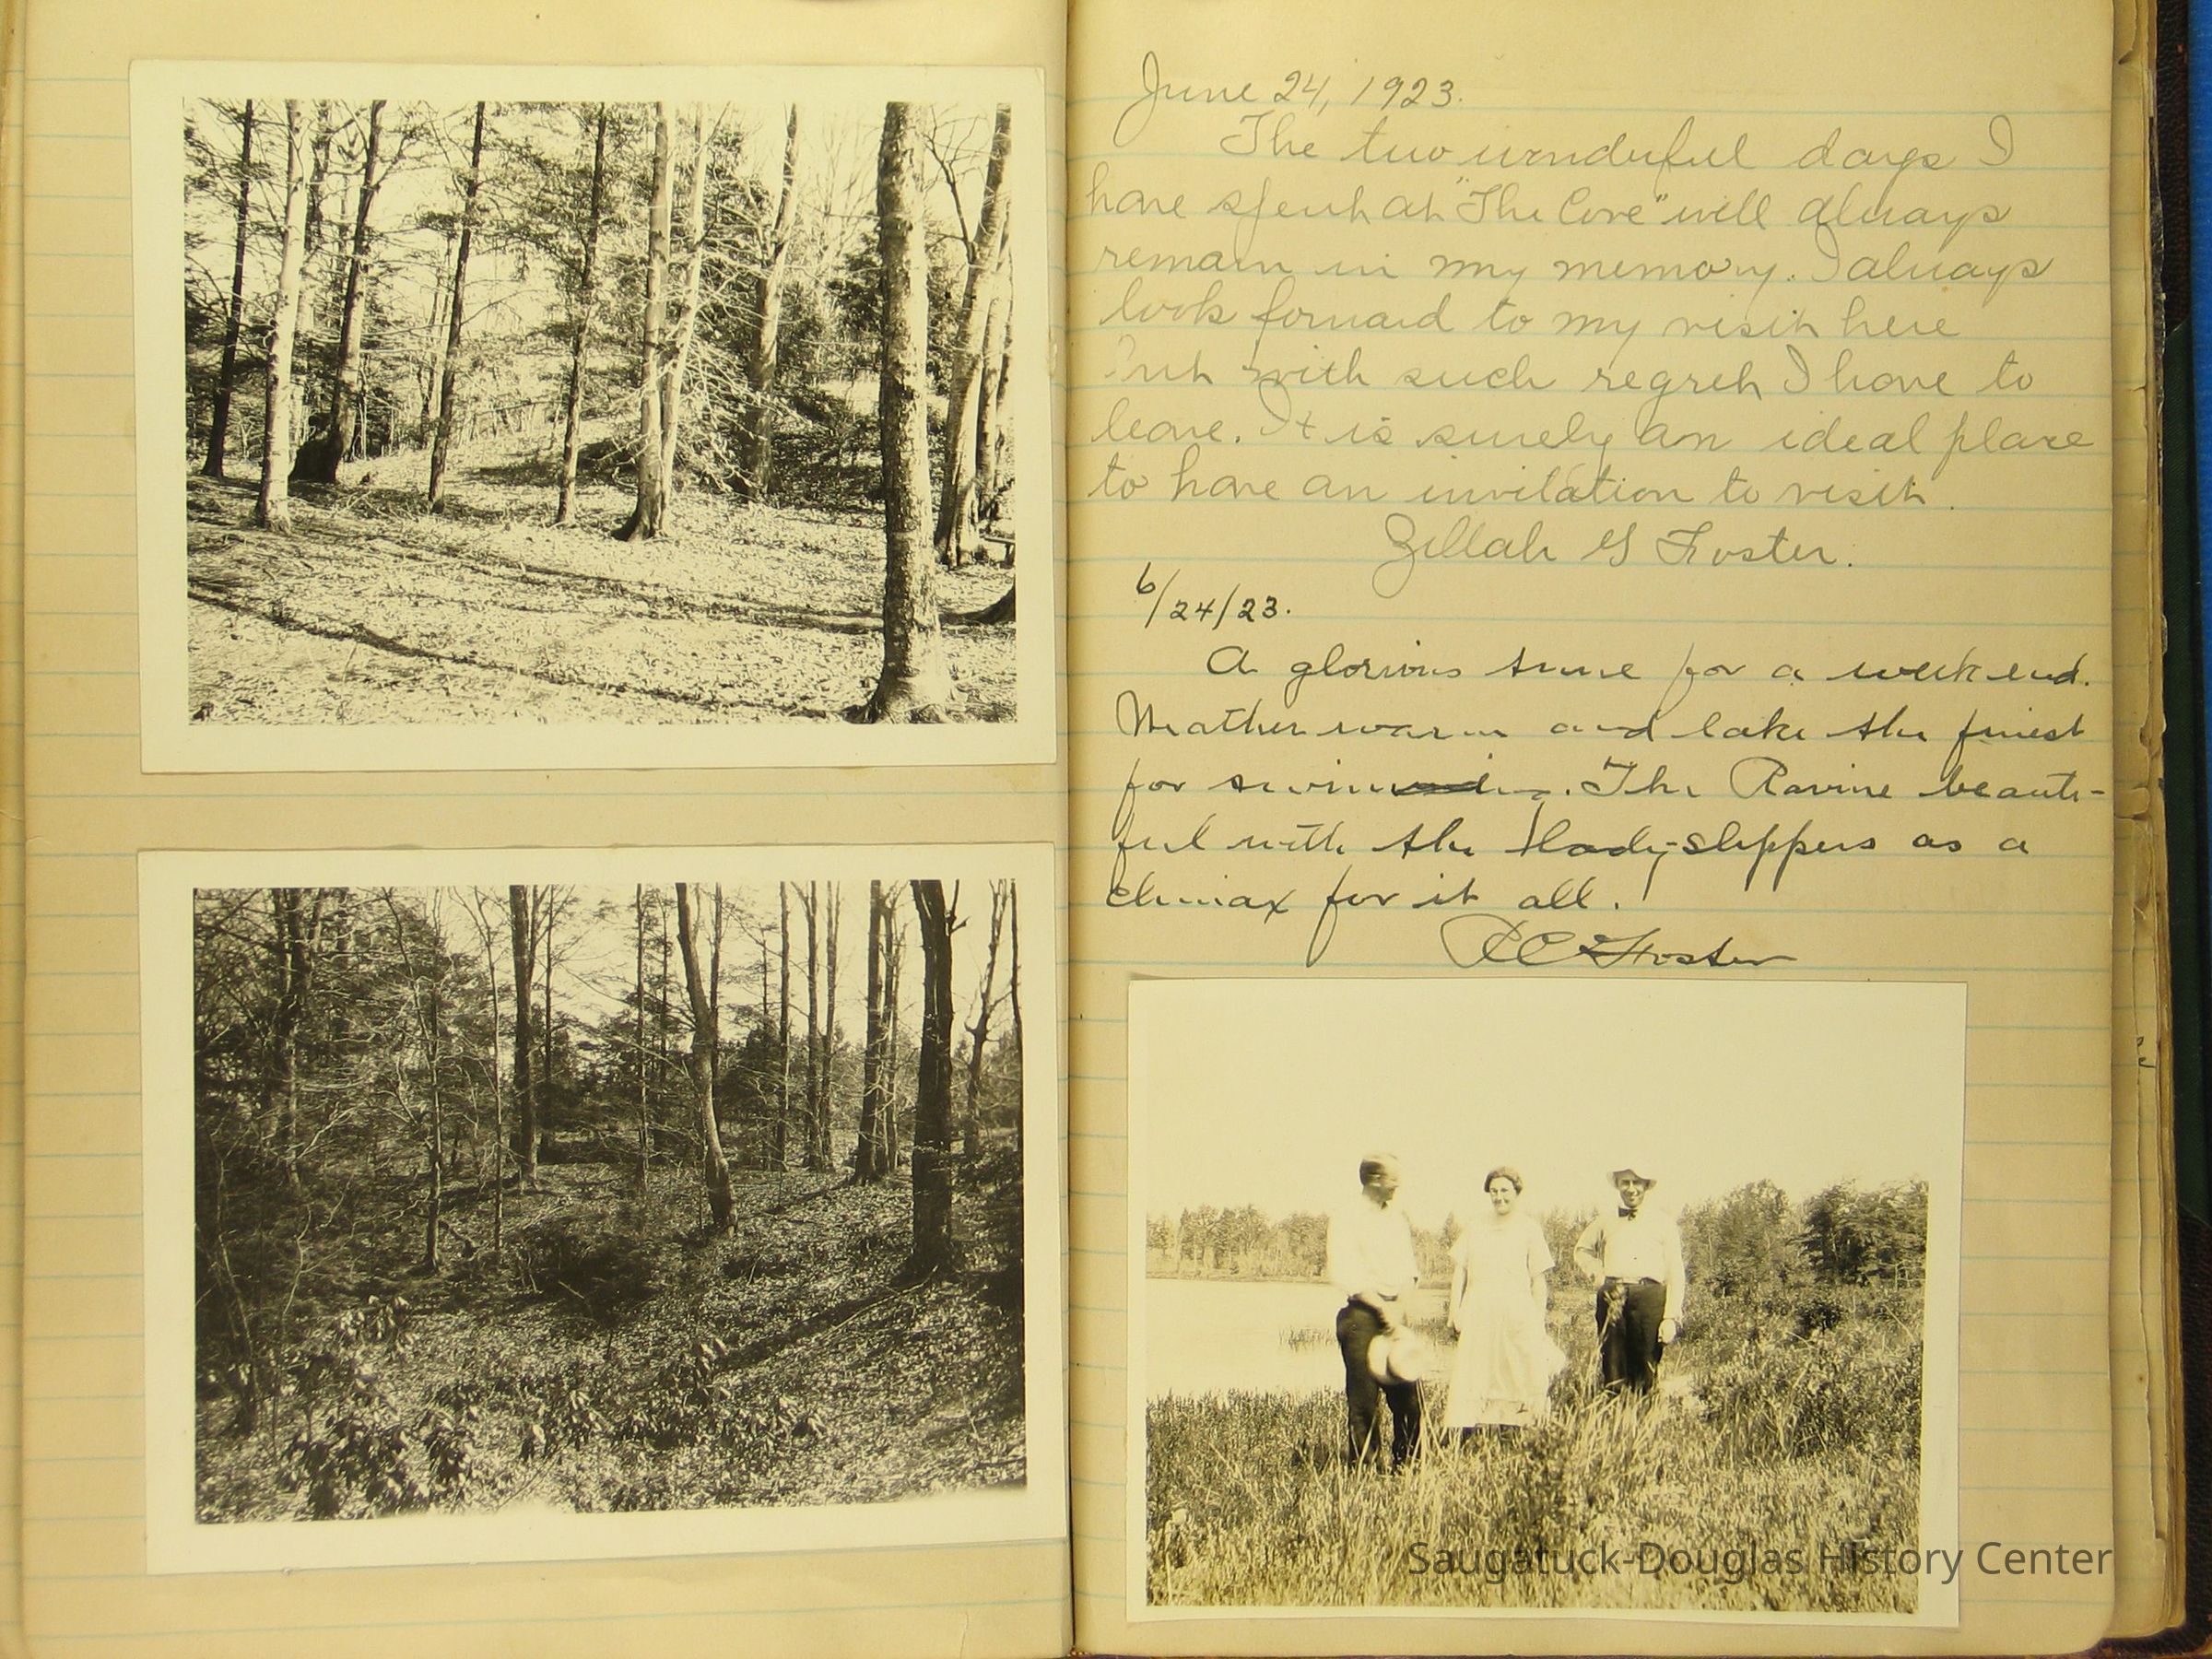 June 24, 1923.
The two wonderful days I
have spent at "The Cove" will always
remain in my memory. I always
look forward to my visit here
but with such regret I have to
leave. It is surely an ideal place
to have an invitation to visit.
Zillah G Foster.
6/24/23.
A glorious time for a week end.
Weather warm and lake the finest
for swimming. The Ravine beauti-
ful with the lady-slippers as a
climax for it all.
Foster
Saugatuck-Douglas History Center